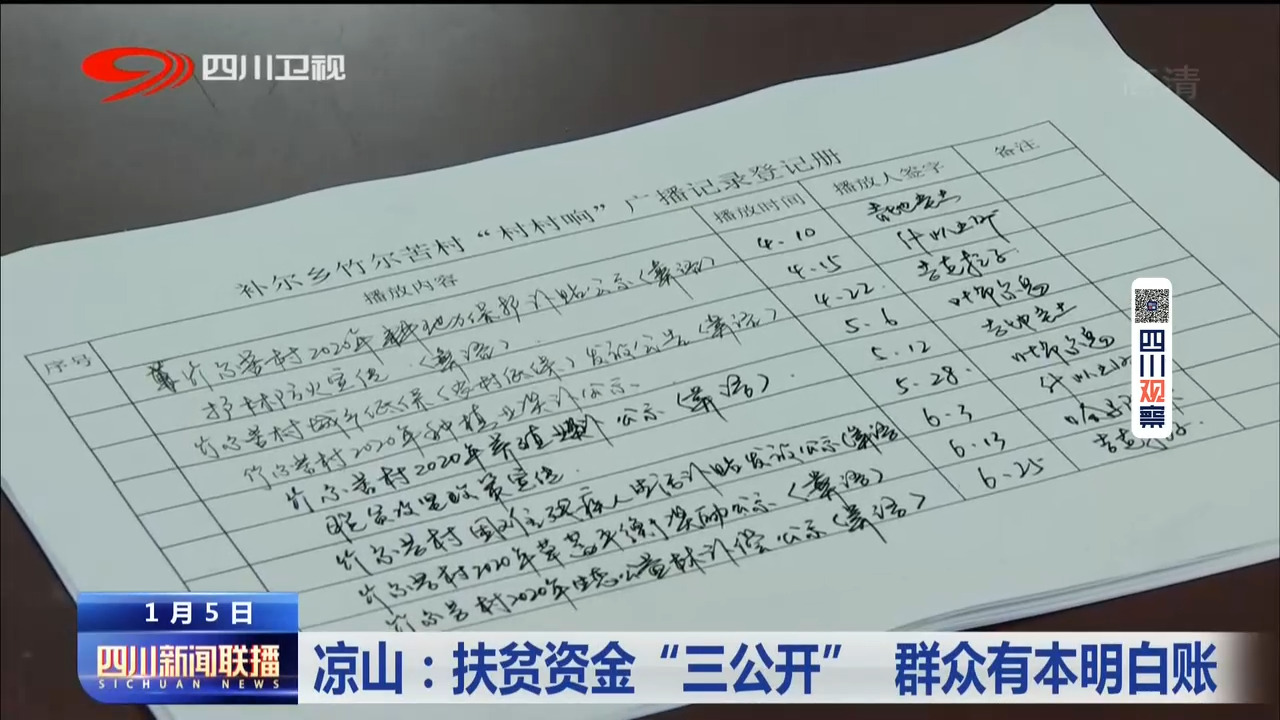 四川卫视
高清
补尔乡竹尔苦村“村村响”广播记录登记册
序号 播放内容 播放时间 播放人签字 备注
竹尔苦村2020年耕地地力保护补贴公示(彝语) 4.10
护林防火宣传(彝语). 4.15
竹尔苦村城乡低保(农村低保)发放公告(彝语) 4.22.
竹尔苦村2020年种植业奖补公示 5.6
竹尔苦村2020年养殖奖补公示(彝语). 5.12
脱贫攻坚政策宣传. 5.28.
竹尔苦村困难残疾人生活补贴发放公示(彝语) 6.3
竹尔苦村2020年草畜平衡奖励公示(彝语) 6.13
竹尔苦村2020年生态公益林补偿公示(彝语) 6.25
四川观察
1月5日
四川新闻联播
SICHUAN NEWS
凉山：扶贫资金“三公开” 群众有本明白账